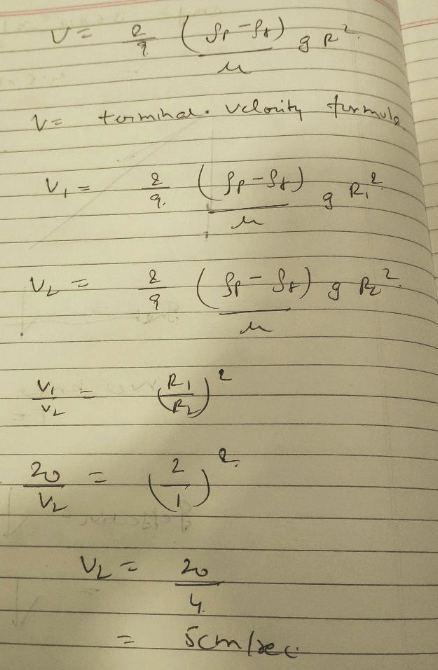 V = 2/9 (ρp - ρf)/μ g R²
V = terminal. velocity formula
V₁ = 2/9. (ρp - ρf)/μ g R₁²
V₂ = 2/9 (ρp - ρf)/μ g R₂²
V₁/V₂ = (R₁/R₂)²
20/V₂ = (2/1)²
V₂ = 20/4
= 5cm/sec